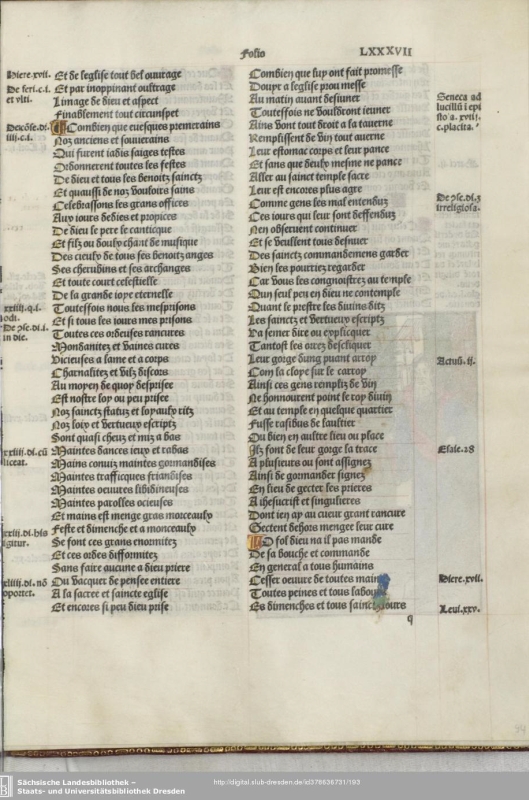 Folio
LXXXVII
Hiere.xvii.
De feri.c.i.
et vlti.
Et de leglise tout bel ouurage
Et par inoppinant oultrage
Limage de dieu et aspect
Finablement tout circunspet
Combien que euesques premerains
Noz anciens et souuerains
Qui furent iadis saiges testes
Ordonnerent toutes les festes
De dieu et tous les benoitz sainctz
Et quaussi de noz vouloirs sains
Celebrassons les grans offices
Auy iours dedies et propices
De dieu le pere le cantique
Et filz ou douly chant de musique
Des cieuly de tous ses benoitz anges
Ses cherubins et ses archanges
Et toute court celestielle
De la grande ioye eternelle
xxiiii.q.i.
odi.
Toutesfois nous les mesprisons
Et si tous les iours mes prisons
in die.
Toutes ces ordeuses rancures
Mondanitez et vaines cures
Vicieuses a lame et a corps
Charnalitez et vilz discors
Au moyen de quoy desprisee
Est nostre loy ou peu prisee
Noz sainctz statuz et loyauly ritz
Noz loix et vertueux escriptz
Sont quasi cheuz et mis a bas
liceat.
Maintes dances ieux et rabas
Mains conuiz maintes gormandises
Maintes trafficques friandises
Maintes oeuures libidineuses
Maintes parolles ocieuses
Et mains est menge gras morceauly
igitur.
Feste et dimenche et a monceauly
Se font ces grans enormitez
Et ces ordes difformitez
Sans faire aucune a dieu priere
oportet.
Ou vacquer de pensee entiere
A la sacree et saincte eglise
Et encores si peu dieu prise
Combien que luy ont fait promesse
Douyr a leglise prou messe
Au matin auant desiuner
Toutesfois ne vouldront ieuner
Ains vont tout droit a la tauerne
Remplissent de vin tout auerne
Leur estomac corps et leur pance
Et sans que deuly mesme ne pance
Aller au sainct temple sacre
Leur est encores plus agre
Comme gens les mal entenduz
Ces iours qui leur sont deffenduz
Nen obseruent continuer
Et se veullent tous desnuer
Des sainctz commandemens garder
Bien les pourriez regarder
Car vous les congnoistrez au temple
Qun seul peu en dieu ne contemple
Quant le prestre les diuins ditz
Les sainctz et vertueux escriptz
Va semer dire ou explicquer
Tantost les orrez desclicquer
Leur gorge dung puant arroy
Com la clope sur le carroy
Ainsi ces gens rempliz de vin
Ne honnourent point le roy diuin
Et au temple en quelque quartier
Fusse rasibus de saultier
Ou bien en aultre lieu ou place
Ilz font de leur gorge la trace
A plusieurs ou sont assignez
Ainsi de gormander signez
En lieu de gecter les prieres
A ihesucrist et singulieres
Dont ien ay au cueur grant rancure
Gectent dehors menger leur cure
O fol dieu na il pas mande
De sa bouche et commande
En general a tous humains
Cesser oeuure de toutes mains
Toutes peines et tous labours
Es dimenches et tous sainctz iours
q
Seneca ad
lucillu i epi
c.placita.
irreligiosa.
Actuu.ii.
Esaie.28
Hiere.xvii.
Leui.xxv.
Sächsische Landesbibliothek –
Staats- und Universitätsbibliothek Dresden
http://digital.slub-dresden.de/id378636731/193